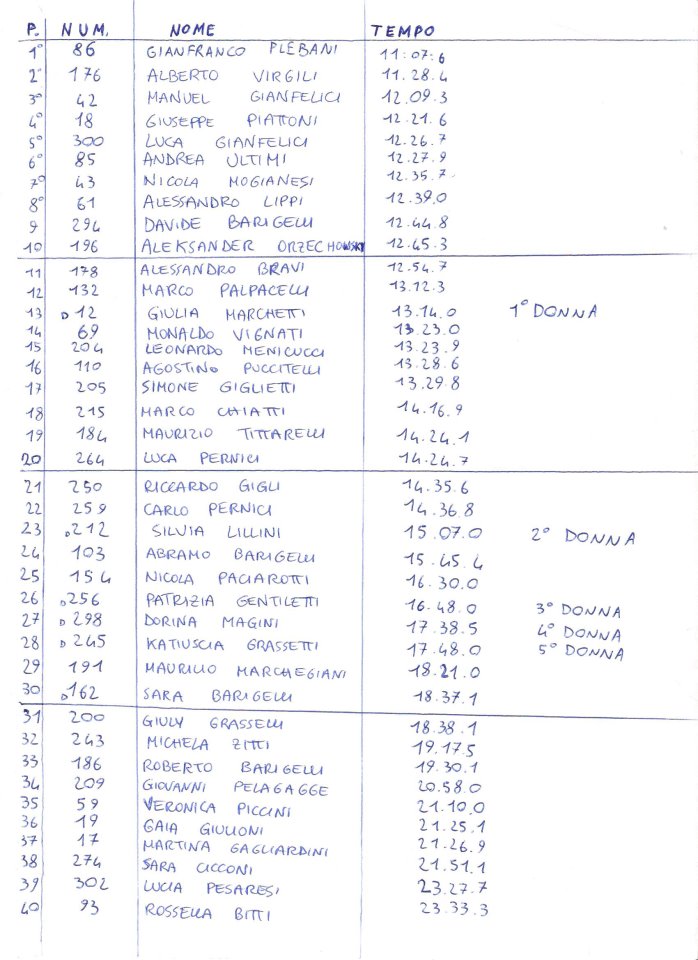 P. NUM. NOME TEMPO
1° 86 GIANFRANCO PLEBANI 11:07:6
2° 176 ALBERTO VIRGILI 11.28.4
3° 42 MANUEL GIANFELICI 12.09.3
4° 18 GIUSEPPE PIATTONI 12.21.6
5° 300 LUCA GIANFELICI 12.26.7
6° 85 ANDREA ULTIMI 12.27.9
7° 43 NICOLA MOGIANESI 12.35.7
8° 61 ALESSANDRO LIPPI 12.39.0
9 294 DAVIDE BARIGELLI 12.44.8
10 196 ALEKSANDER ORZECHOWSKI 12.45.3
11 178 ALESSANDRO BRAVI 12.54.7
12 132 MARCO PALPACELLI 13.12.3
13 D 12 GIULIA MARCHETTI 13.14.0 1° DONNA
14 69 MONALDO VIGNATI 13.23.0
15 204 LEONARDO MENICUCCI 13.23.9
16 110 AGOSTINO PUCCITELLI 13.28.6
17 205 SIMONE GIGLIETTI 13.29.8
18 215 MARCO CHIATTI 14.16.9
19 184 MAURIZIO TITTARELLI 14.24.1
20 264 LUCA PERNICI 14.24.7
21 250 RICCARDO GIGLI 14.35.6
22 259 CARLO PERNICI 14.36.8
23 D 212 SILVIA LILLINI 15.07.0 2° DONNA
24 103 ABRAMO BARIGELLI 15.45.4
25 154 NICOLA PACIAROTTI 16.30.0
26 D 256 PATRIZIA GENTILETTI 16.48.0 3° DONNA
27 D 298 DORINA MAGINI 17.38.5 4° DONNA
28 D 245 KATIUSCIA GRASSETTI 17.48.0 5° DONNA
29 191 MAURILIO MARCHEGIANI 18.21.0
30 D 162 SARA BARIGELLI 18.37.1
31 200 GIULY GRASSELLI 18.38.1
32 243 MICHELA ZITTI 19.17.5
33 186 ROBERTO BARIGELLI 19.30.1
34 209 GIOVANNI PELAGAGGE 20.58.0
35 59 VERONICA PICCINI 21.10.0
36 19 GAIA GIULIONI 21.25.1
37 17 MARTINA GAGLIARDINI 21.26.9
38 274 SARA CICCONI 21.51.1
39 302 LUCIA PESARESI 23.27.7
40 93 ROSSELLA BITTI 23.33.3